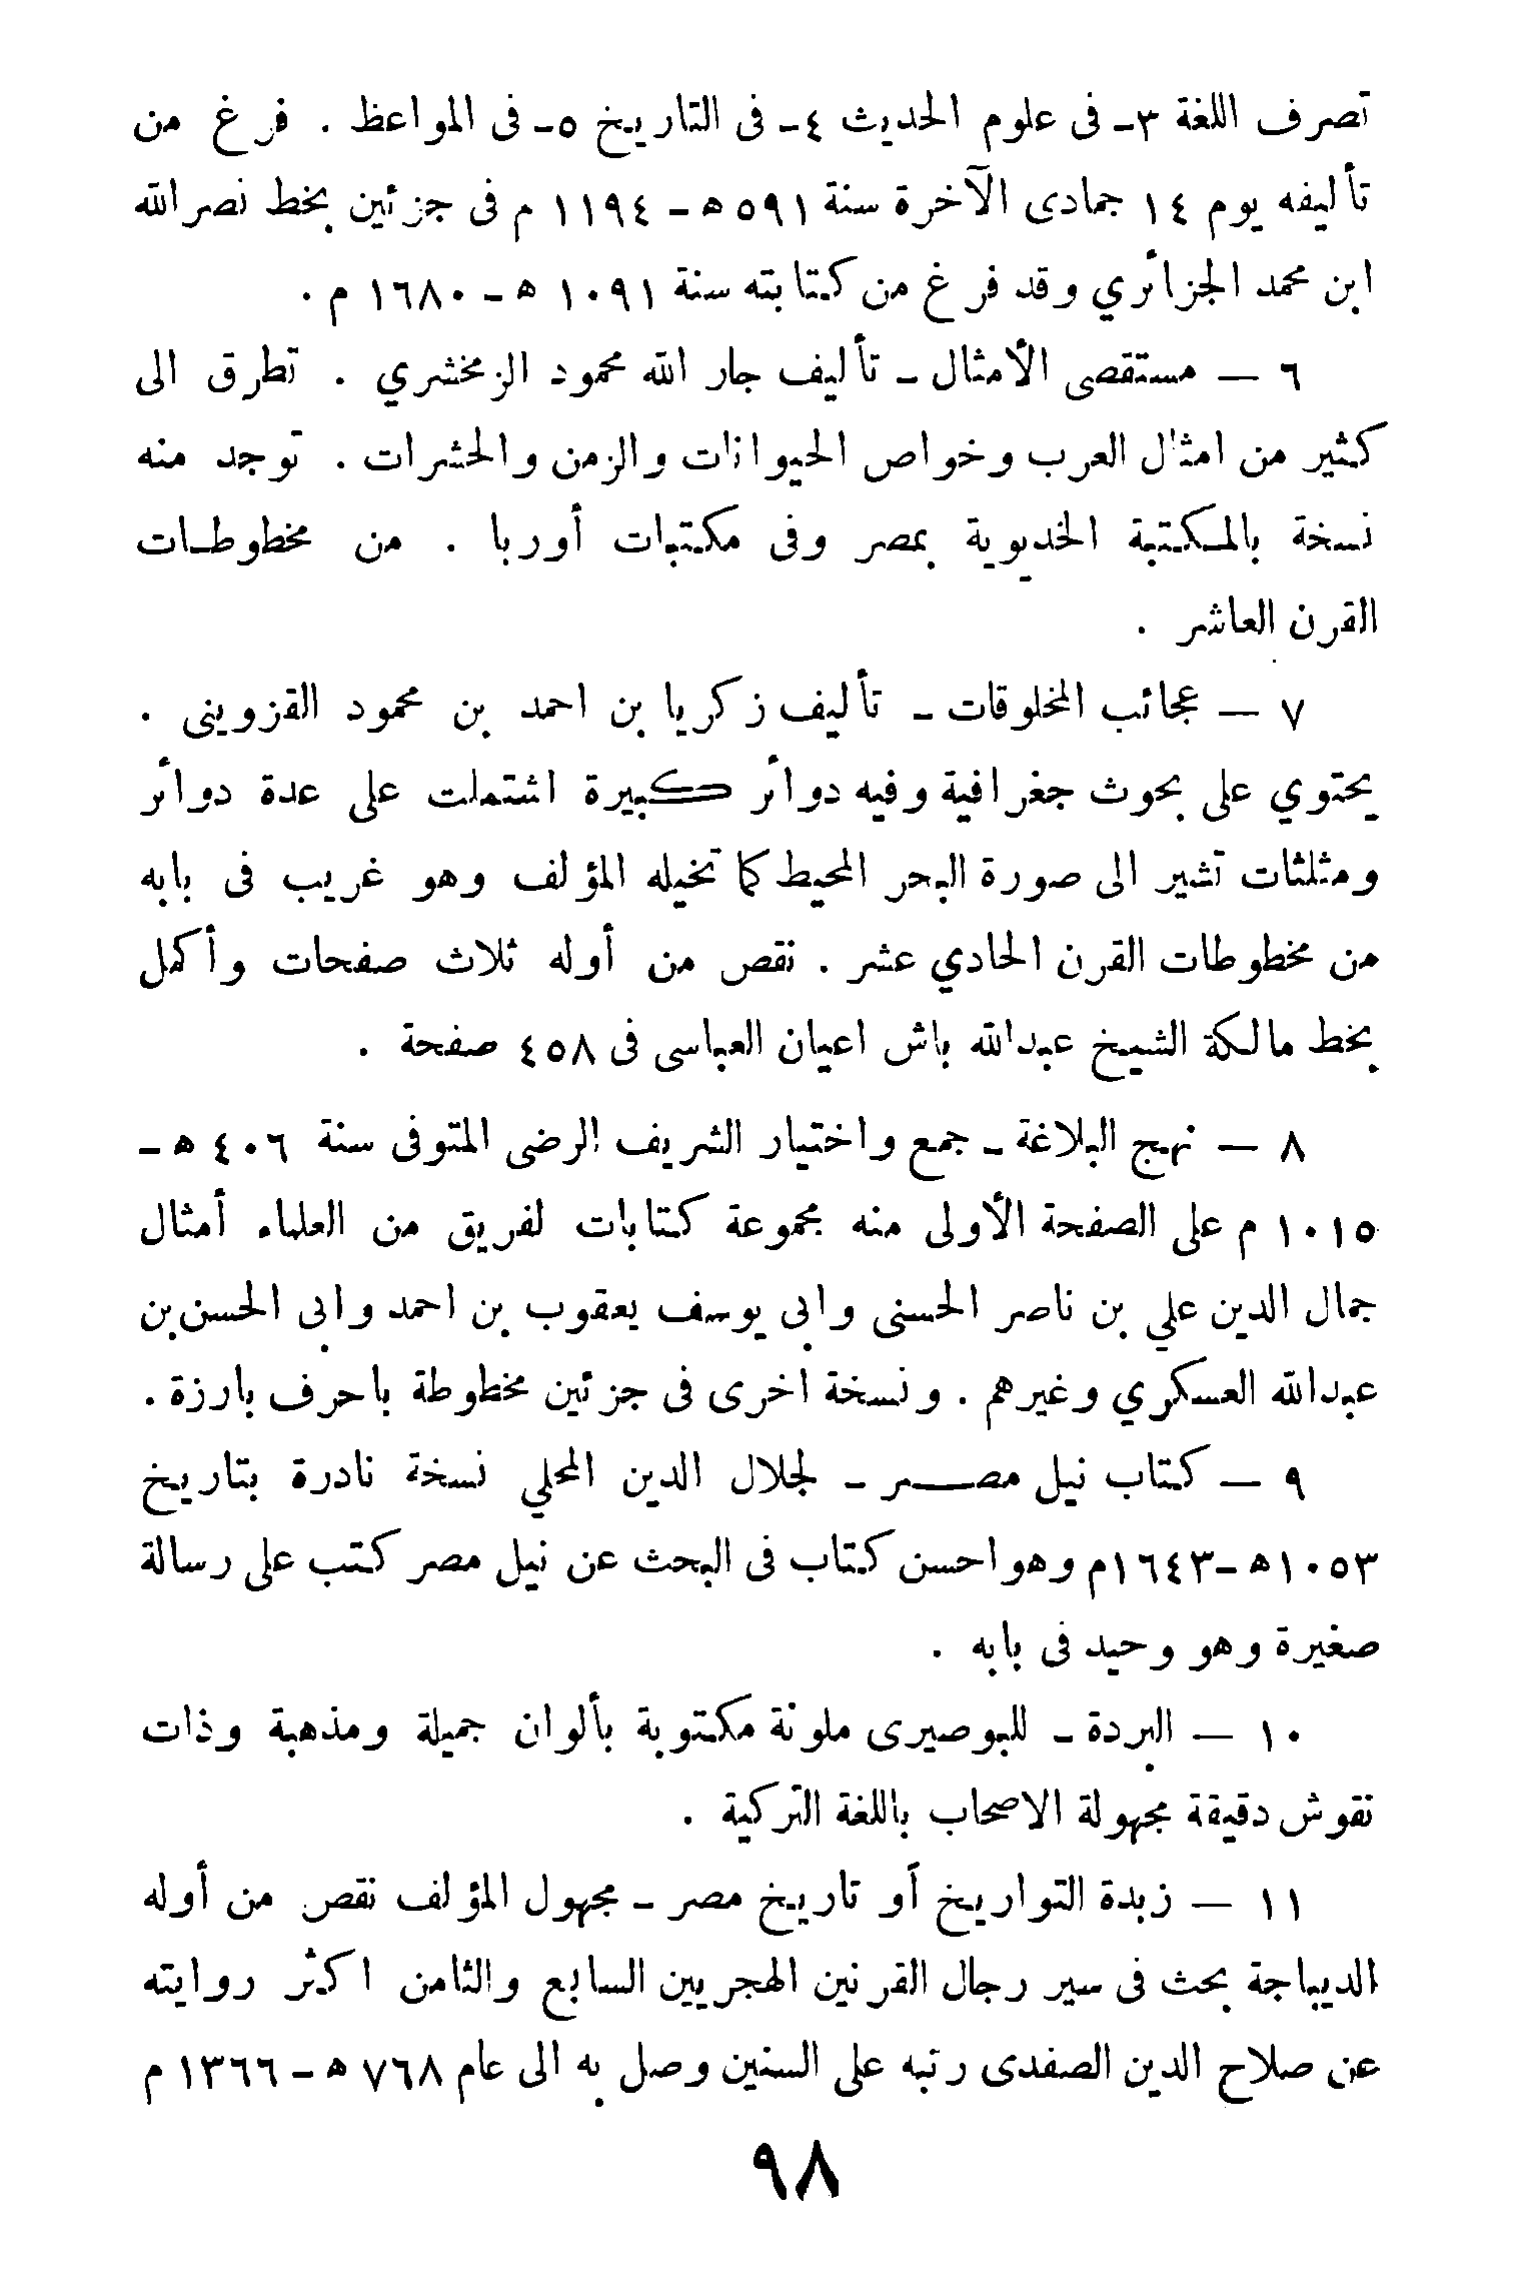 تصرف اللغة ٣ـ فى علوم الحديث ٤ـ فى التاريخ ٥ـ فى المواعظ . فرغ من
تأليفه يوم ١٤ جمادى الآخرة سنة ٥٩١ هـ ـ ١١٩٤ م فى جزئين بخط نصرالله
ابن محمد الجزائري وقد فرغ من كتابته سنة ١٠٩١ هـ ـ ١٦٨٠ م .
٦ — مستقصى الأمثال ـ تأليف جار الله محمود الزمخشري . تطرق الى
كثير من امثال العرب وخواص الحيوانات والزمن والحشرات . توجد منه
نسخة بالمكتبة الخديوية بمصر وفى مكتبات أوربا . من مخطوطات
القرن العاشر .
٧ — عجائب المخلوقات ـ تأليف زكريا بن احمد بن محمود القزوينى .
يحتوي على بحوث جغرافية وفيه دوائر كبيرة اشتملت على عدة دوائر
ومثلثات تشير الى صورة البحر المحيط كما تخيله المؤلف وهو غريب فى بابه
من مخطوطات القرن الحادي عشر . نقص من أوله ثلاث صفحات وأكمل
بخط مالكة الشيخ عبدالله باش اعيان العباسى فى ٤٥٨ صفحة .
٨ — نهج البلاغة ـ جمع واختيار الشريف الرضى المتوفى سنة ٤٠٦ هـ ـ
١٠١٥ م على الصفحة الأولى منه مجموعة كتابات لفريق من العلماء أمثال
جمال الدين علي بن ناصر الحسنى وابى يوسف يعقوب بن احمد وابى الحسن بن
عبدالله العسكري وغيرهم . ونسخة اخرى فى جزئين مخطوطة باحرف بارزة .
٩ — كتاب نيل مصـــر ـ لجلال الدين المحلي نسخة نادرة بتاريخ
١٠٥٣هـ ـ١٦٤٣م وهو احسن كتاب فى البحث عن نيل مصر كتب على رسالة
صغيرة وهو وحيد فى بابه .
١٠ — البردة ـ للبوصيرى ملونة مكتوبة بألوان جميلة ومذهبة وذات
نقوش دقيقة مجهولة الاصحاب باللغة التركية .
١١ — زبدة التواريخ أو تاريخ مصر ـ مجهول المؤلف نقص من أوله
الديباجة بحث فى سير رجال القرنين الهجريين السابع والثامن اكثر روايته
عن صلاح الدين الصفدى رتبه على السنين وصل به الى عام ٧٦٨ هـ ـ ١٣٦٦ م
٩٨